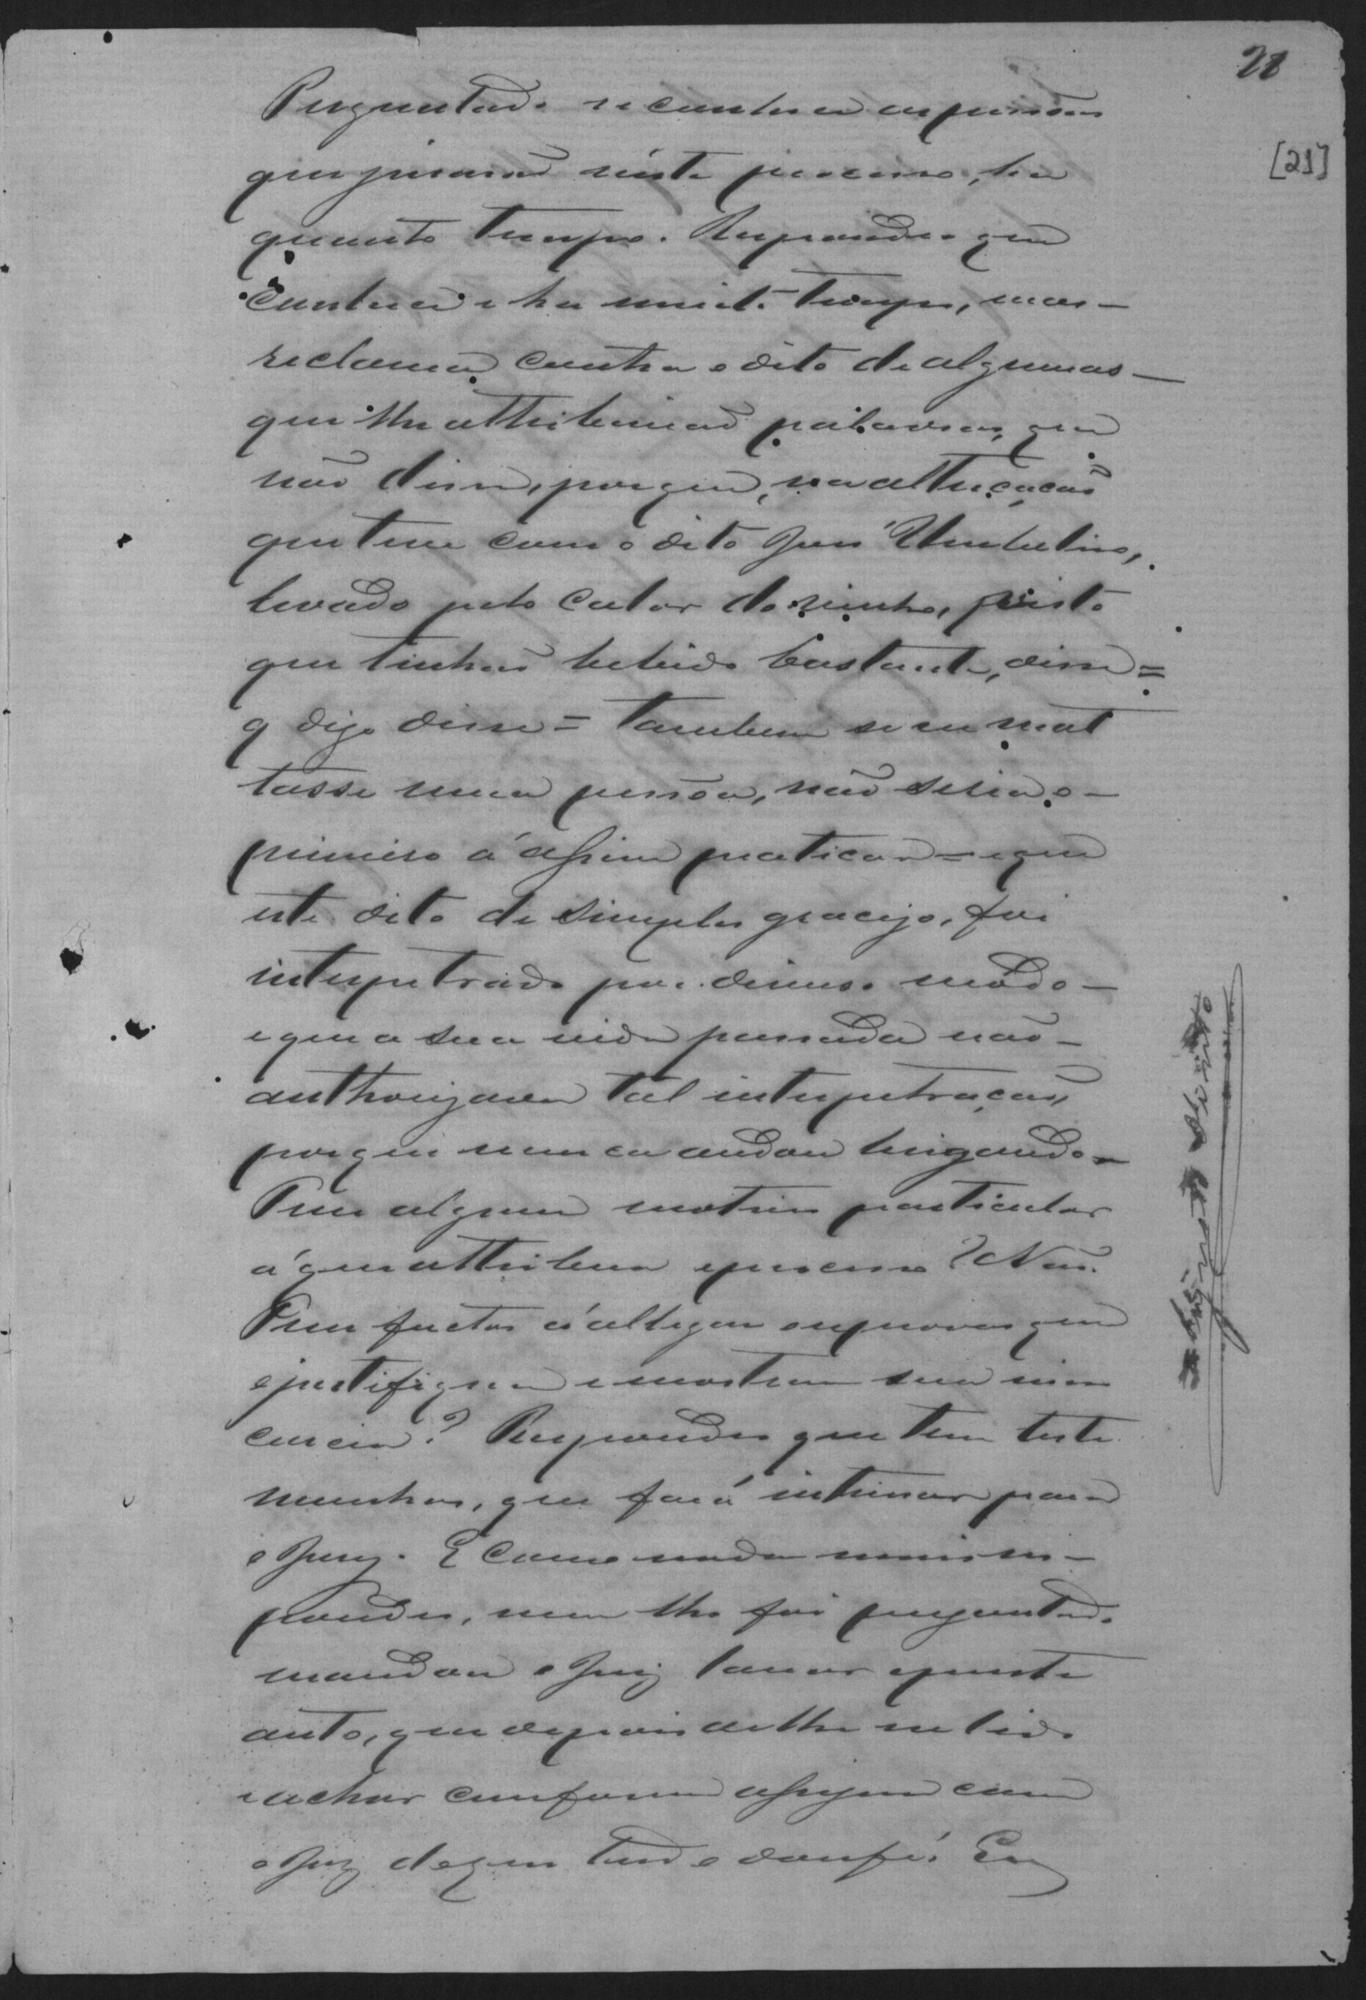 21
[21]
Perguntado se conhece as pessoas
que jurarão néste processo, ha
quanto tempo. Respondeo que
Conhece e ha muito tempo, mas
reclama contra o dito de algumas
que lhe attribuirão palavras, que
não disse, por que, na altercação
que teve com o dito José Umbelino,
levado pelo calor do vinho, pois to
que tinhão bebido bastante, disse =
q digo disse = tambem se eu mat
tasse uma pessôa, não seria o
primeiro á assim praticar = e que
este dito de simples gracejo, foi
interpetrado por diverso módo
e que a sua vida passada não
authorizava tal interpetração,
por que nunca andou brigando =
Tem algum motivo particular
á que attribua o processo? Não.
Tem factos á allegar ou provas que
o justifiquem e mostrem sua inno
cencia? Respondeo que tem teste
munhas, que fará intimar para
o Jury. E como nada mais res
pondeo, nem lhe foi perguntado
mandou o Juiz lavrar o presente
auto, que depois de lhe ser lido
e achar conforme assigna com
o Juiz de que tudo dou fé. Eu